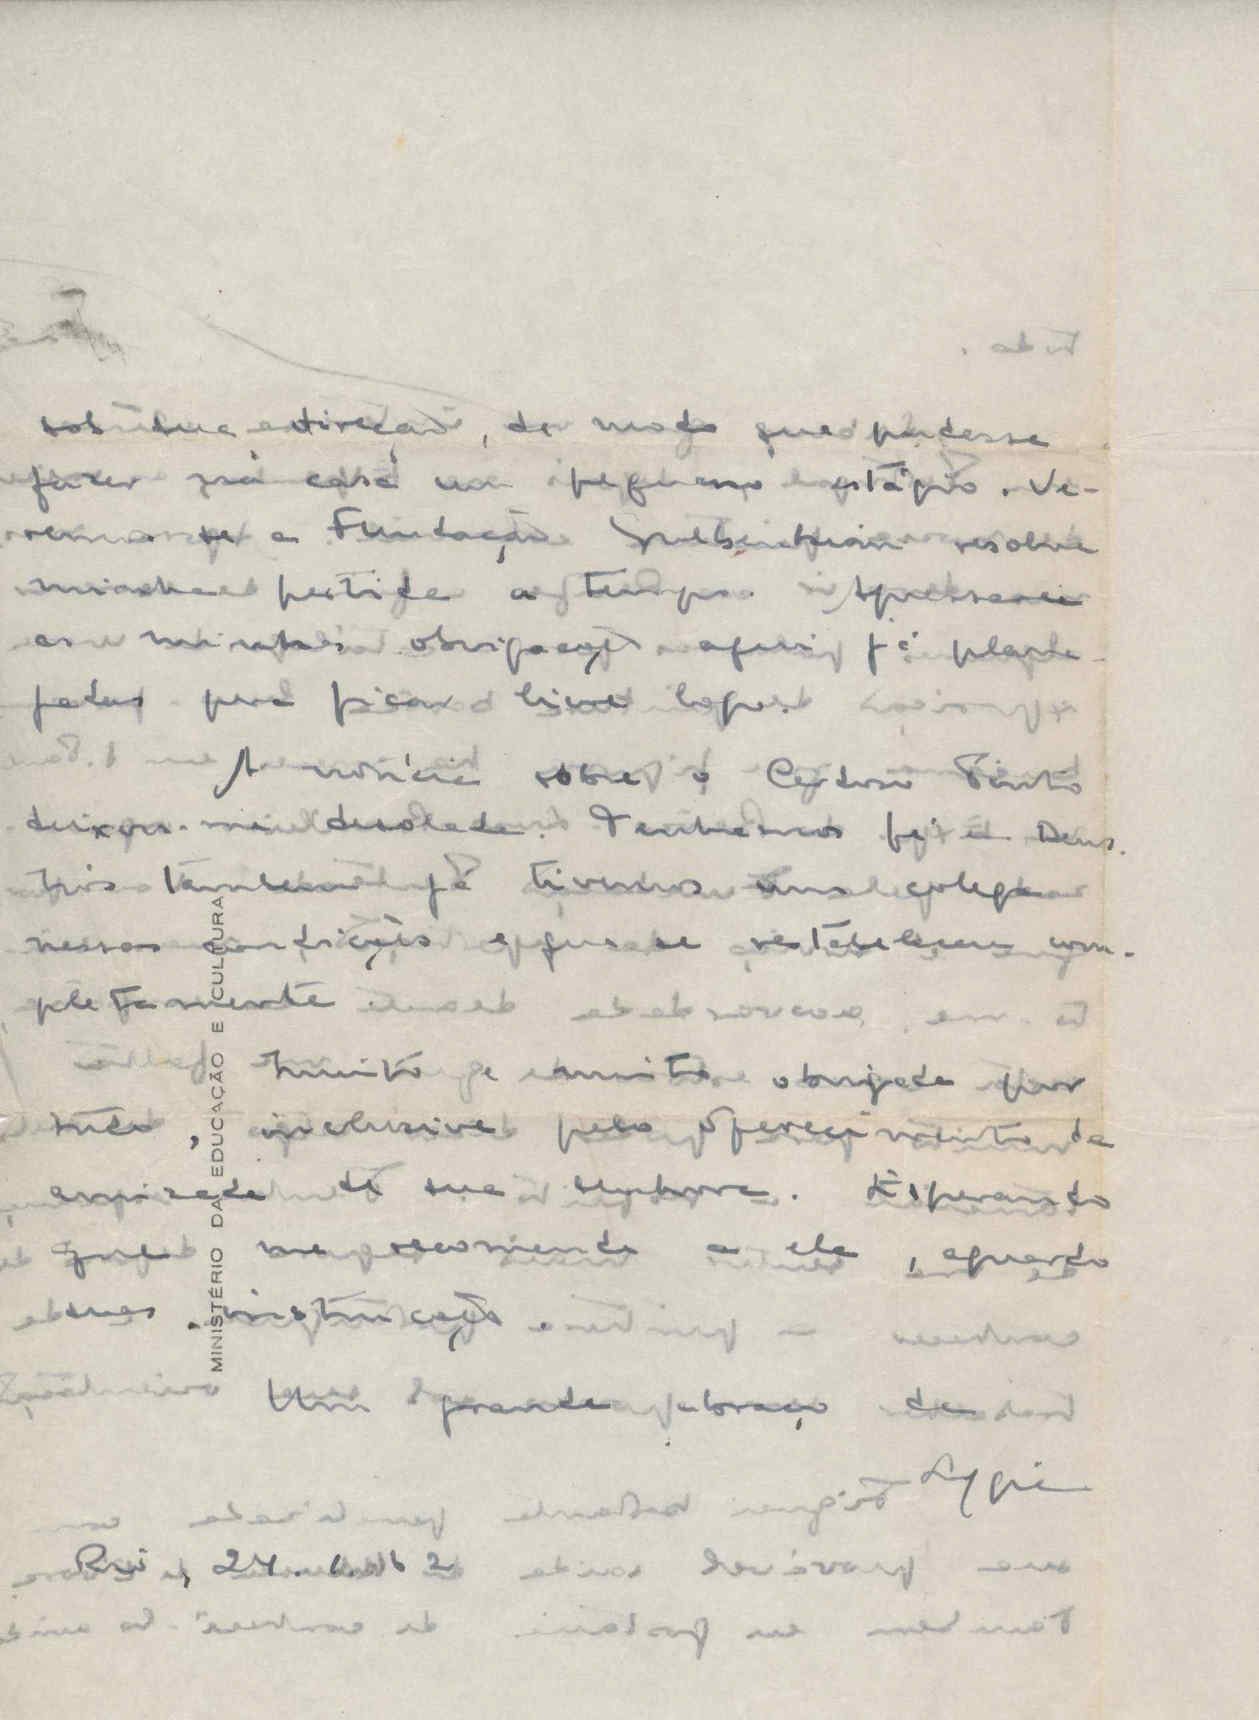 sob sua direção, de modo que pudesse
fazer na casa um pequeno estágio. Ve-
remos se a Fundação Gulbenkian resolve
minha partida a tempo. Apressarei
as minhas obrigações aqui já plane-
jadas para ficar livre logo.
A notícia sobre o Cardoso Pinto
deixou-me desolada. Tenhamos fé em Deus.
Nós também já tivemos uma colega
nessas condições e que se restabeleceu com-
pletamente
Muito e muito obrigada por
tudo, inclusive pelo oferecimento da
amizade de sua senhora. Esperando
que me recomende a ela, aguardo
suas instruções
Um grande abraço de
Lygia
Rio, 24.1.62
MINISTÉRIO DA EDUCAÇÃO E CULTURA